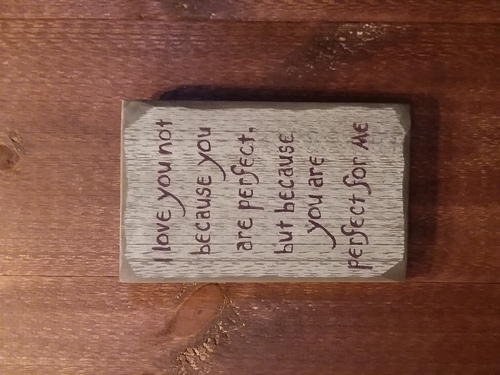 I love you not
because you
are perfect,
but because
you are
perfect for ME